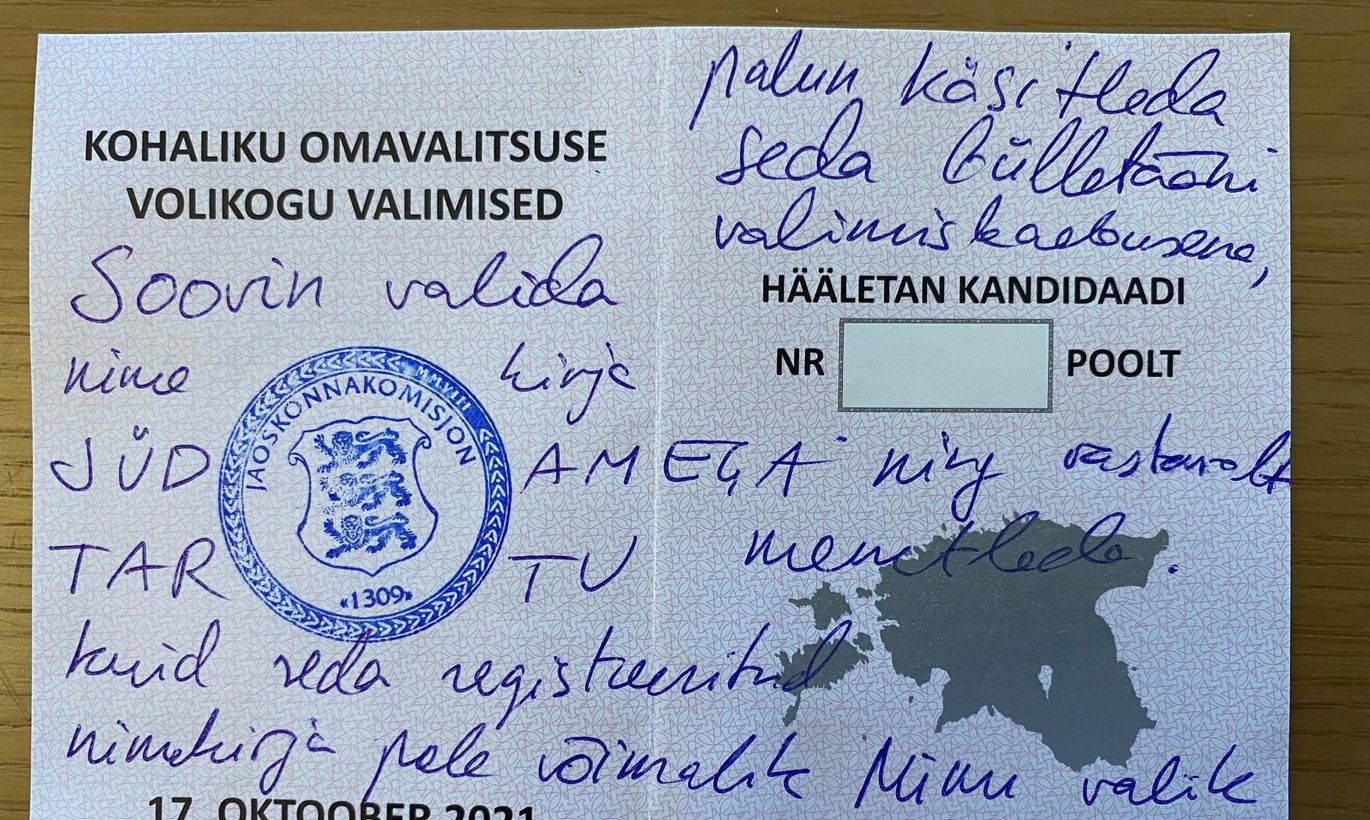 KOHALIKU OMAVALITSUSE
VOLIKOGU VALIMISED
Soovin valida
nime kirja
JÜD AMEGA
TAR TU
kuid seda registreeritud
nimekirja pole võimalik Minu valik
17. OKTOOBER 2021
JAOSKONNAKOMISJON
MMVIII
«1309»
palun käsitleda
seda bülletääni
valimiskaebusena,
HÄÄLETAN KANDIDAADI
NR POOLT
ning vastavalt
menetleda.